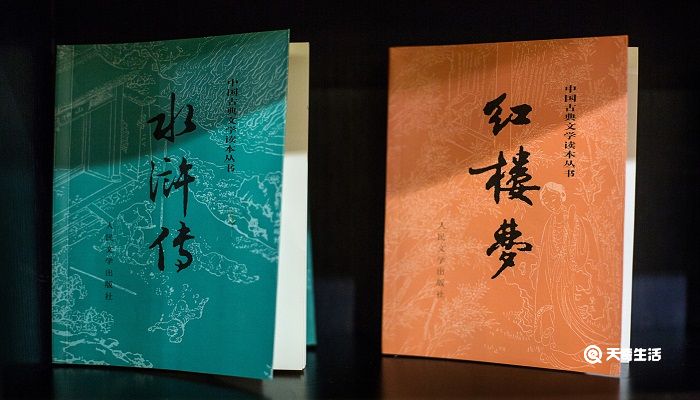 水浒传
中国古典文学读本丛书
人民文学出版社
红楼梦
中国古典文学读本丛书
人民文学出版社
天晴生活